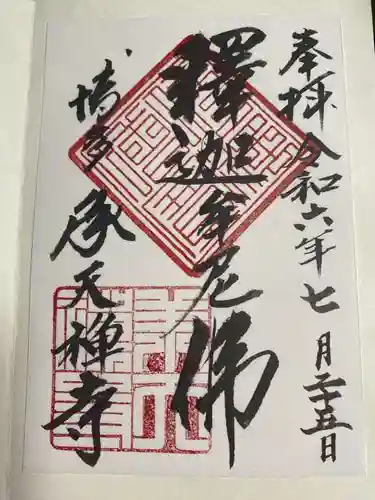 奉拝 令和六年七月二十五日
釋迦牟尼佛
博多 承天禅寺